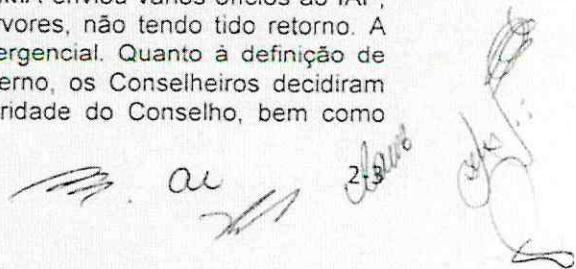 MA enviou vários ofícios ao IAP,
rvores, não tendo tido retorno. A
ergencial. Quanto à definição de
erno, os Conselheiros decidiram
ridade do Conselho, bem como
2-3